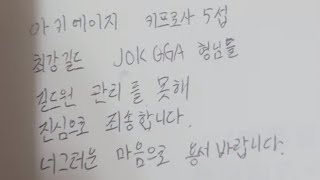 아키에이지 키프로사 5섭
최강길드 JOKGGA 형님들
길드원 관리를 못해
진심으로 죄송합니다.
너그러운 마음으로 용서 바랍니다.